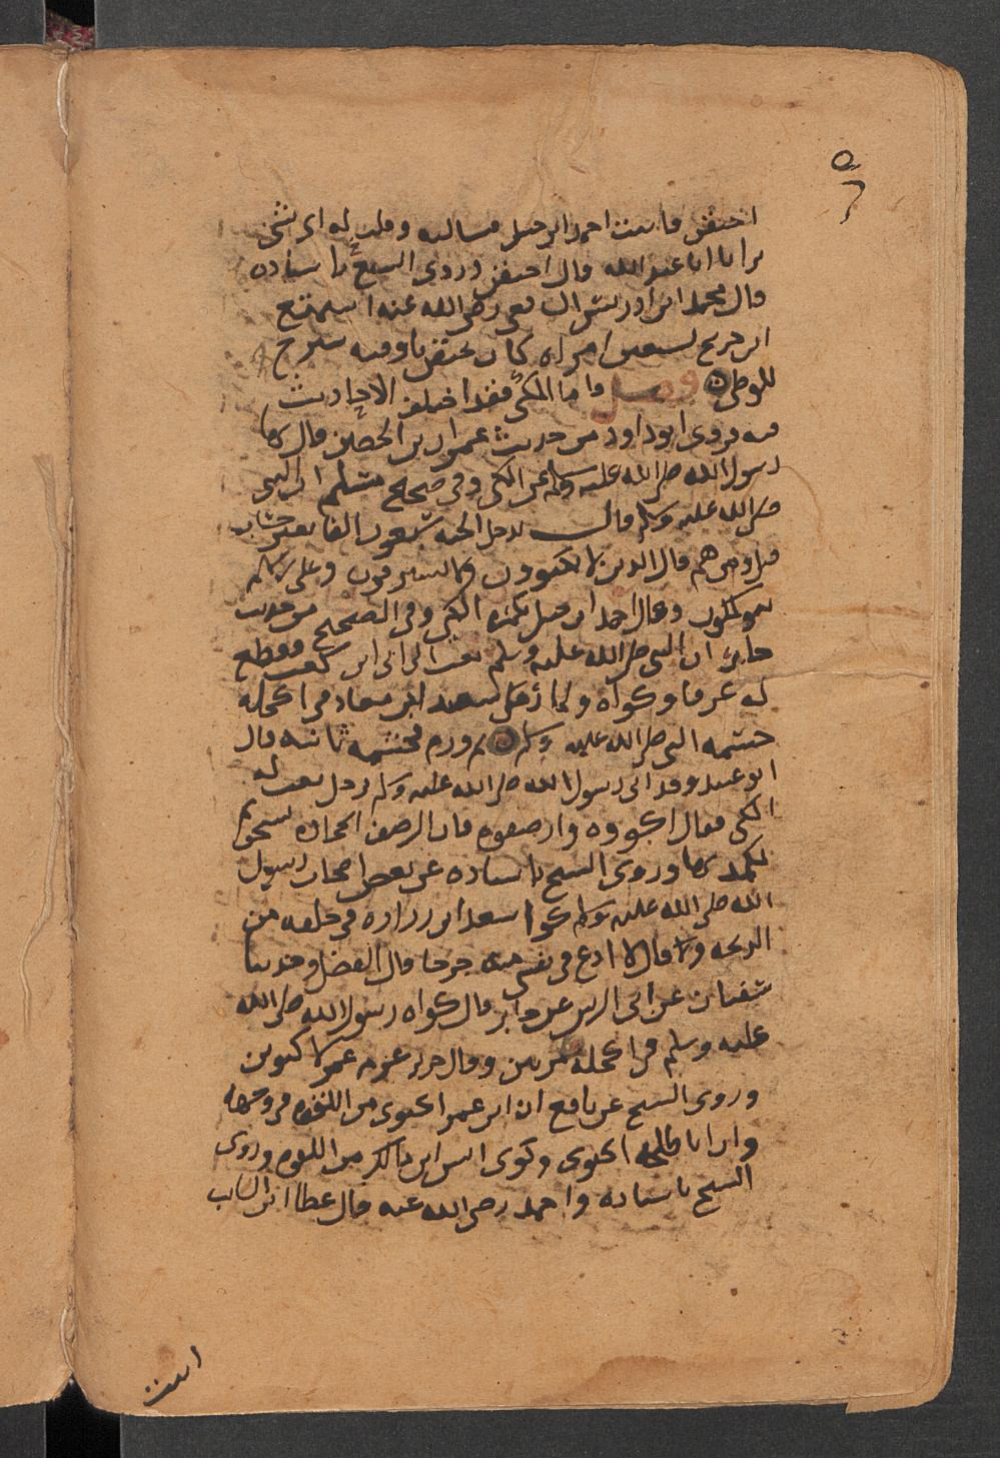 احتقن فاتيت احمد ابن حنبل فسالته وقلت له اي شي
ترا يا ابا عبد الله قال احتقن وروى الشيخ باسناده
قال محمد ابن ادريس الشافعي رضي الله عنه استمتع
ابن جريج بسبعين امراه كان يحتقن باوقيه شيرج
للوطي فصل واما الكي فقد اختلف الاحاديث
فيه فروى ابو داود من حديث عمران بن الحصين قال نهانا
رسول الله صلى الله عليه وسلم عن الكي وفي صحيح مسلم ان النبي
صلى الله عليه وسلم قال يدخل الجنة سبعون الفا بغير حساب
قيل ومن هم قال الذين لا يكتوون ولا يسترقون وعلى ربهم
يتوكلون وقال احمد ابن حنبل يكره الكي وفي الصحيح من حديث
جابر ان النبي صلى الله عليه وسلم بعث الى ابي ابن كعب فقطع
له عرقا وكواه ولما رمي سعد ابن معاد في اكحله
حسمه النبي صلى الله عليه وسلم ثم ورم فحسمه ثانيه قال
ابو عبيد وقد اتى رسول الله صلى الله عليه وسلم رجل نعت له
الكي فقال اكووه وارضفوه قال الرضف الحجاره تسخن ثم
يكمد بها وروى الشيخ باسناده عن بعض اصحاب رسول
الله صلى الله عليه وسلم كوا سعد ابن زراره في حلقه من
الذبحه وقال لا ادع في نفسي منه حرجا قال الفضل وحدثنا
سفيان عن ابي الزبير عن جابر قال كواه رسول الله صلى الله
عليه وسلم في اكحله مرتين وقال جرير عزم عمر لاكتوين
وروى الشيخ عن نافع ان ابن عمر اكتوى من اللقوه في وجهه
وان ابا طلحه اكتوى وكوى انس ابن مالك من اللقوه وروى
الشيخ باسناده واحمد رضي الله عنه قال عطا ابن السايب
اتيت